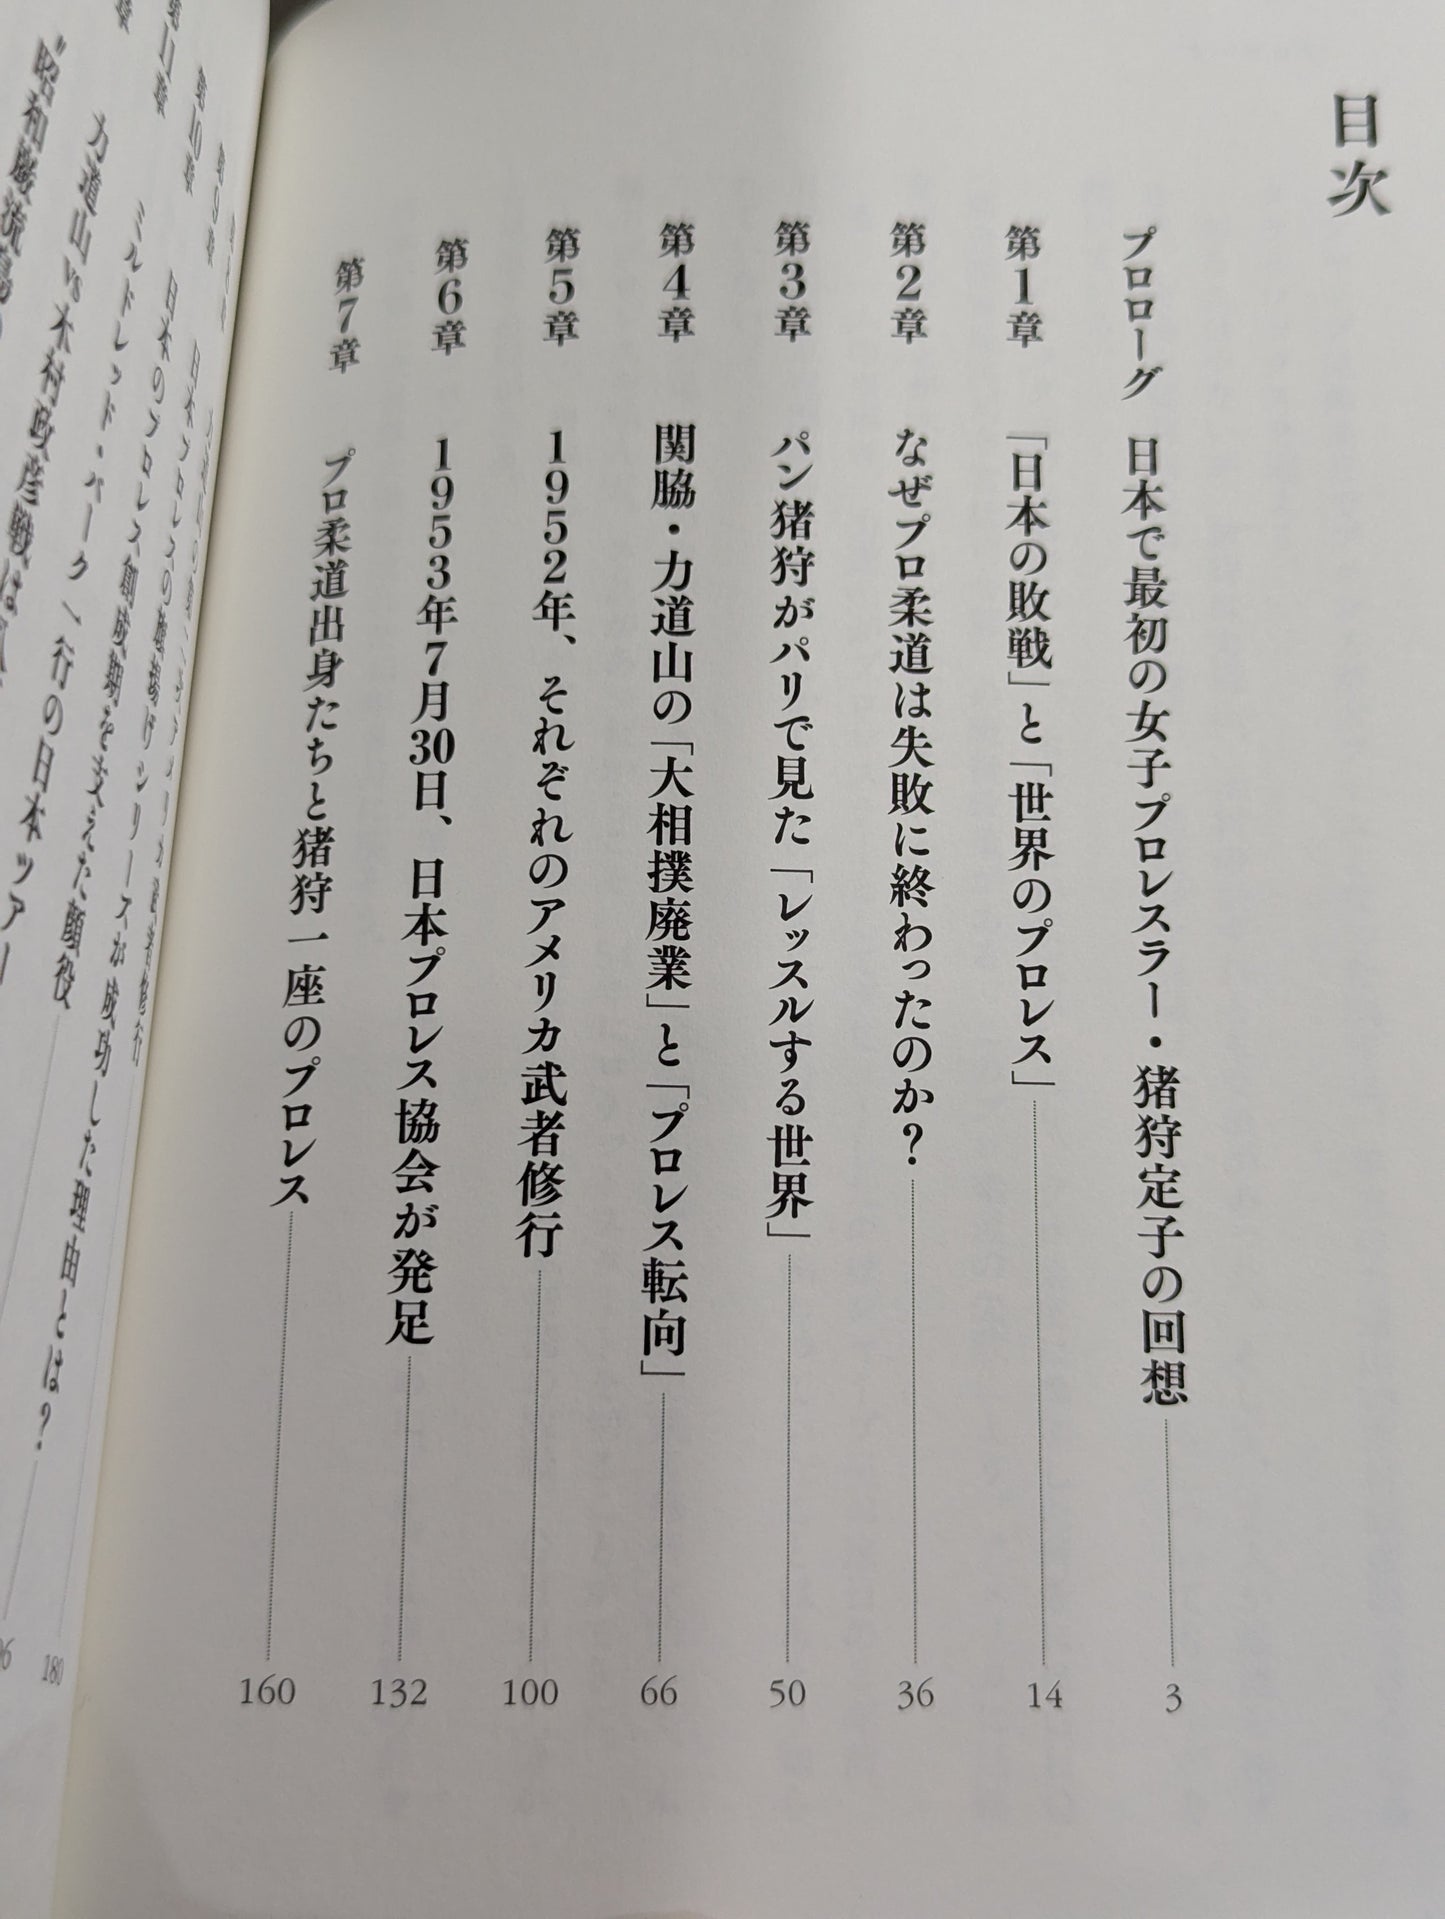 目次
プロローグ 日本で最初の女子プロレスラー・猪狩定子の回想 3
第1章 「日本の敗戦」と「世界のプロレス」 14
第2章 なぜプロ柔道は失敗に終わったのか? 36
第3章 パン猪狩がパリで見た「レッスルする世界」 50
第4章 関脇・力道山の「大相撲廃業」と「プロレス転向」 66
第5章 1952年、それぞれのアメリカ武者修行 100
第6章 1953年7月30日、日本プロレス協会が発足 132
第7章 プロ柔道出身たちと猪狩一座のプロレス 160
日本プロレスの旗揚げシリーズが成功した理由とは? 180
日本のプロレス創成期を支えた顔役
ミルドレッド・バーク一行の日本ツアー
力道山vs木村政彦戦は
第10章
第11章
"昭和巌流島